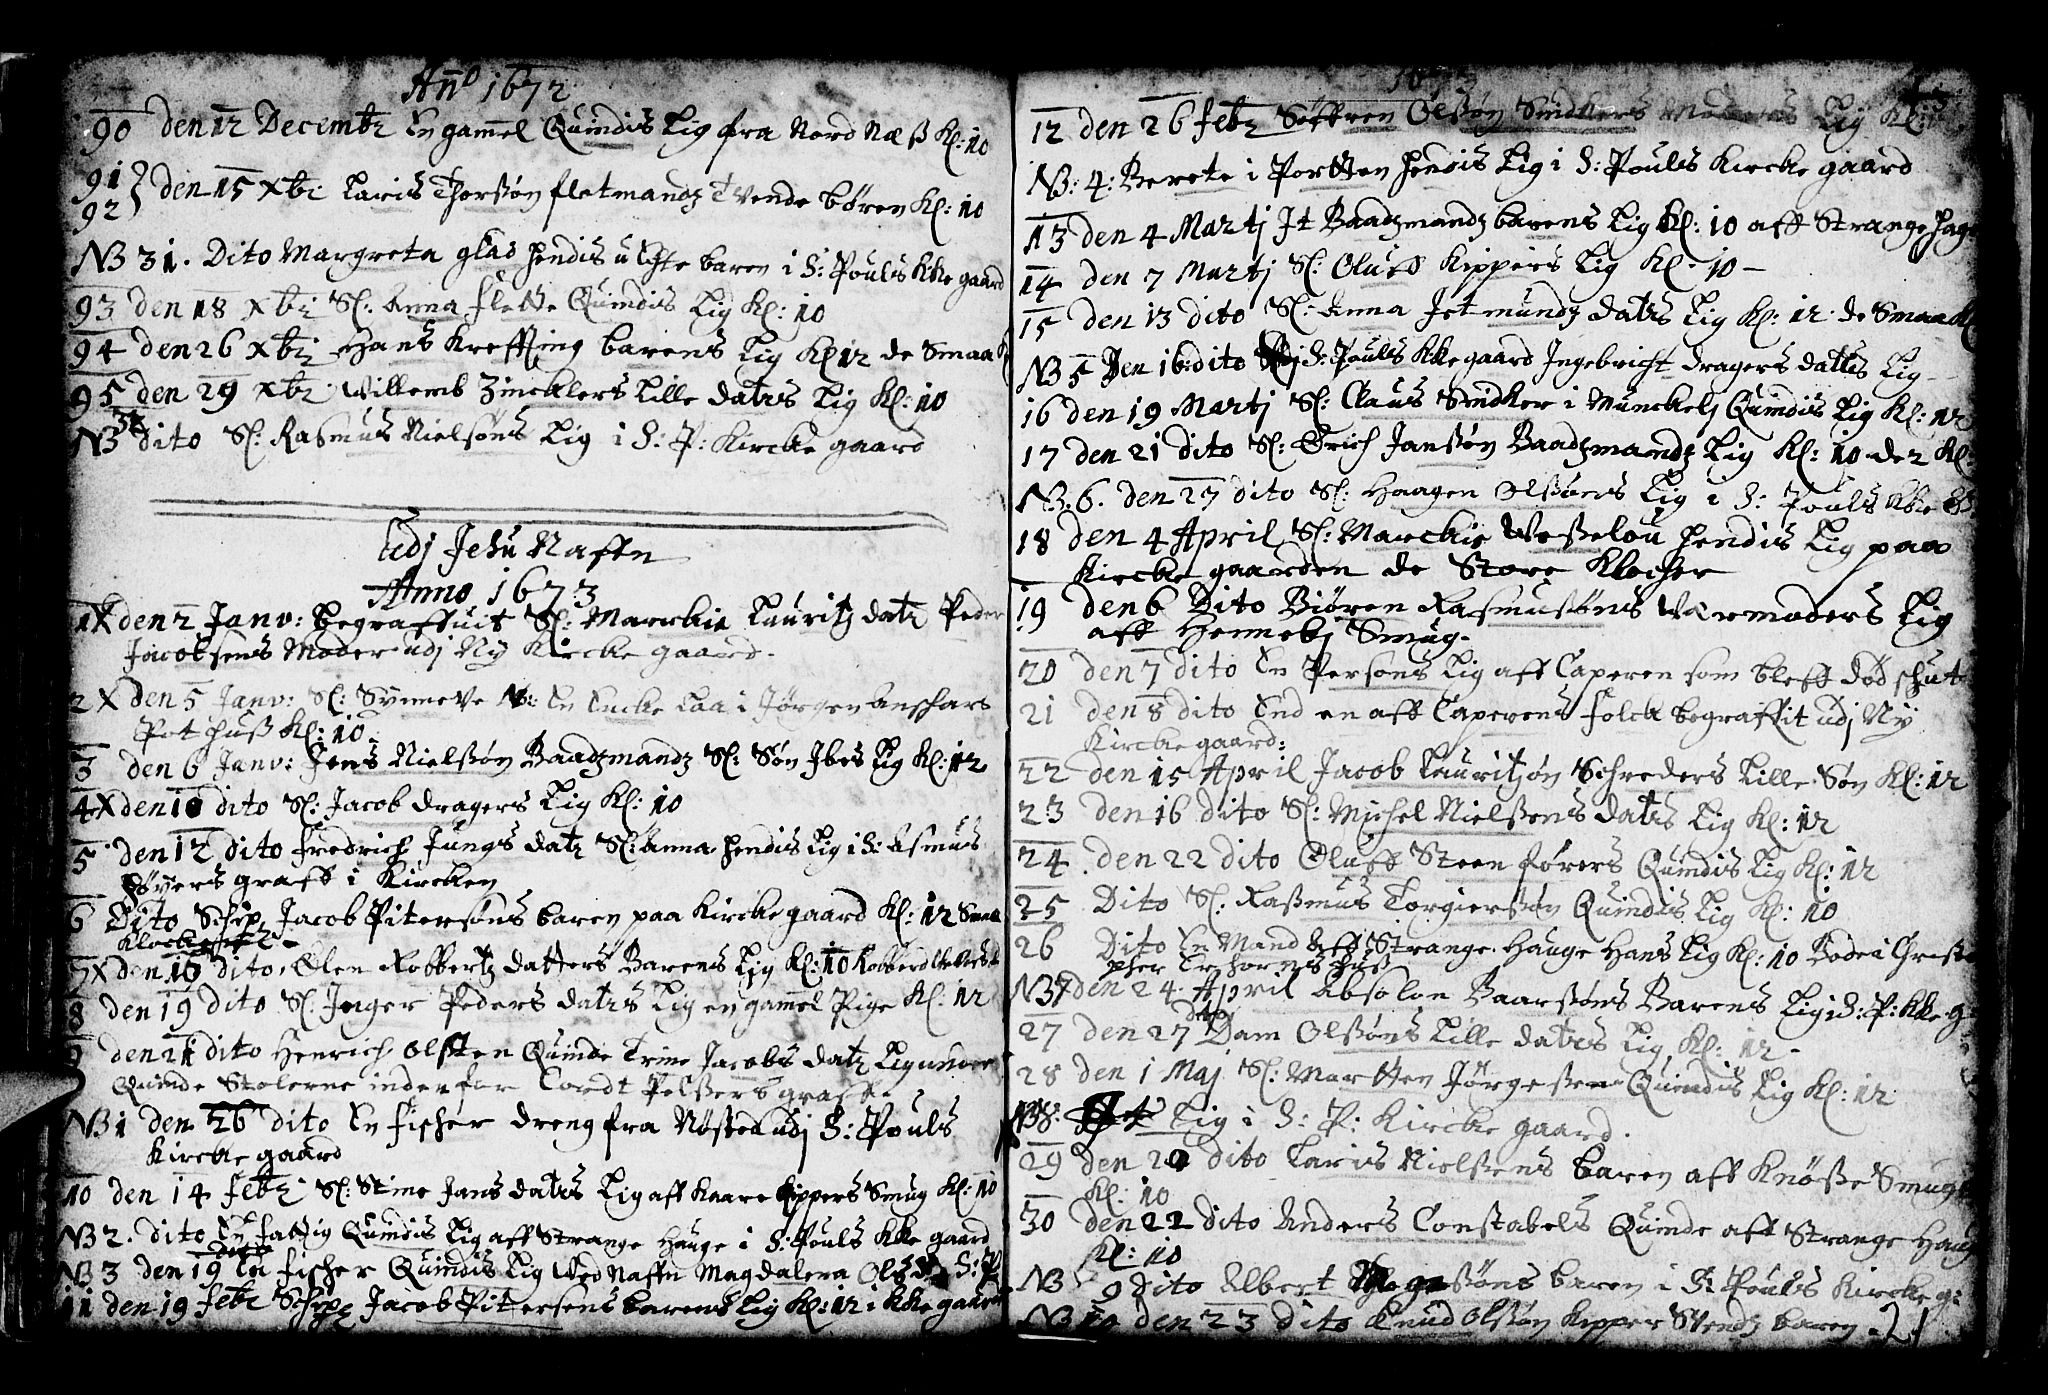 Añõ 1672
90 den 12 Decembr En gammel Quindis Lig fra Nord Næß Kl: 10
91
92 } den 15 Xbr Laris Thorsøn fletmandz Tvende børen Kl: 10
NB 31. Dito Margreta glas hendis uEchte baren i S: Pouls Kke gaard
93 den 18 Xbr Sl: Anna flette Quindis Lig Kl: 10
94 den 26 Xbr Hans Kreffting barens Lig Kl 12 de Smaa
95 den 29 Xbr Willemb Zincklers Lille datrs Lig Kl: 10
NB 32 dito Sl: Rasmus Nielsøns Lig i S: P: Kircke gaard
Udj Jesu Naffn
Anno 1673
1X den 2 Janv: begraffuit Sl: Marrkie Lauritz datr Peder
Jacobsens Moder udj Ny Kircke gaard.
2X den 5 Janv: Sl: Synneve En Encke Laa i Jørgen Anshars
Pothuß Kl: 10
3 den 6 Janv: Jens Nielsøn Baadzmandz Sl: Søn Ibes Lig Kl: 12
4X den 10 dito Sl: Jacob dragers Lig Kl: 10
5 den 12 dito Fredrich Jungs datr Sl: Anna hendis Lig i S: Asmus
Søvers graff i Kircken
6 Dito Schip. Jacob Pitersøns baren paa Kircke gaard Kl: 12 Smaa
Klocker
7X den 10 dito. Olen Robbertz datters Barens Lig Kl: 10
8 den 19 dito Sl: Inger Peders datrs Lig en gammel Pige Kl: 12
9 den 21 dito Henrich Olsten Quinde Trine Jacobs datr Lig under
Quinde Stolerne inden for Cordt Pelßers graff.
NB 1 den 26 dito En fischer dreng fra Nøsted udj S: Pouls
Kircke gaard
10 den 14 febr Sl: Stine Jans datrs Lig aff Kaare Kippers Smug Kl: 10
NB 2. dito En fattig Quindis Lig aff Strange Hauge i S: Pouls Kke gaard
NB 3 den 19 dito En fischer Quindis Lig Ved Naffn Magdalena Ols d S: P
11 den 19 febr Schip: Jacob Pitersens barens Lig Kl: 12 i Kke gaard
12 den 26 febr Søffren Olsøn Sndkers Lig Kl:
NB: 4: Berete i Portten hendis Lig i S: Pouls Kircke gaard
13 den 4 Martj It Baadzmandz barens Lig Kl: 10 aff Strange hag
14 den 7 Martj Sl: Oluff Kippers Lig Kl: 10 –
15 den 13 dito Sl: Anna Jetmundz datrs Lig Kl: 12 de Smaa Kl
NB 5 den 16: dito S: Pouls Kke gaard Ingebricht dragers datters Lig –
16 den 19 Martj Sl: Claus Sndker i Munckelj Quindis Lig Kl: 12
17 den 21 dito Sl: Erich Jansøn Baadzmandz Lig Kl: 10 de 2 Kl:
NB. 6. den 27 dito Sl: Haagen Olsøns Lig i S: Pouls Kke
18 den 4 April Sl: Marckie Weßelou hendis Lig paa
Kircke gaarden de Store Klocker
19 den 6 Dito Biøren Rasmusøns Varmoders Lig
aff Hennebj Smug.
20 den 7 dito En Persons Lig aff Caperen som bleff død shut
21 den 8 dito End en aff Caperens folck begraffit udj Ny
Kircke gaard:
22 den 15 April Jacob Lauritzøn Schreders Lille Søn Kl: 12
23 den 16 dito Sl: Michel Nielßens datrs Lig Kl: 12
24 den 22 dito Oluff Steen førers Quindis Lig Kl: 12
25 Dito Sl. Rasmus Torgiersøn Quindis Lig Kl: 10
26 Dito En Mand aff Strange Hauge Hans Lig Kl: 10 Bode i Christo
pher Erhorns hus
NB 7 den 24 April Absolon Baarsøns Barens Lig i S: P: Kke g
27 den 27 dito Dam Olsøns Lille datrs Lig Kl: 12 –
28 den 1 Maj Sl: Martten Jørgeßen Quindis Lig Kl: 12
NB 8: Lig i S: P: Kircke gaard.
29 den 20 dito Laris Nielßens baren aff Knøße Smug
Kl: 10
30 den 22 dito Anders Constabels Quinde aff Strange Haug
Kl: 10
NB 9 dito Albert baren i S: Pouls Kircke g:
NB 10 den 23 dito Knud Olsøn Kipper Svendz baren